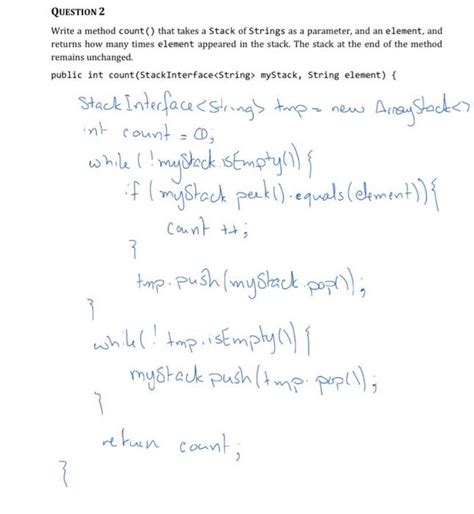 QUESTION 2
Write a method count() that takes a Stack of Strings as a parameter, and an element, and
returns how many times element appeared in the stack. The stack at the end of the method
remains unchanged.
public int count(StackInterface<String> myStack, String element) {
StackInterface<String> tmp = new ArrayStack<>
int count = 0;
while (!myStack.isEmpty()) {
if (myStack peek().equals(element)) {
count ++;
}
tmp.push(myStack.pop());
}
while(! tmp.isEmpty()) {
myStack push(tmp.pop());
}
return count;
}